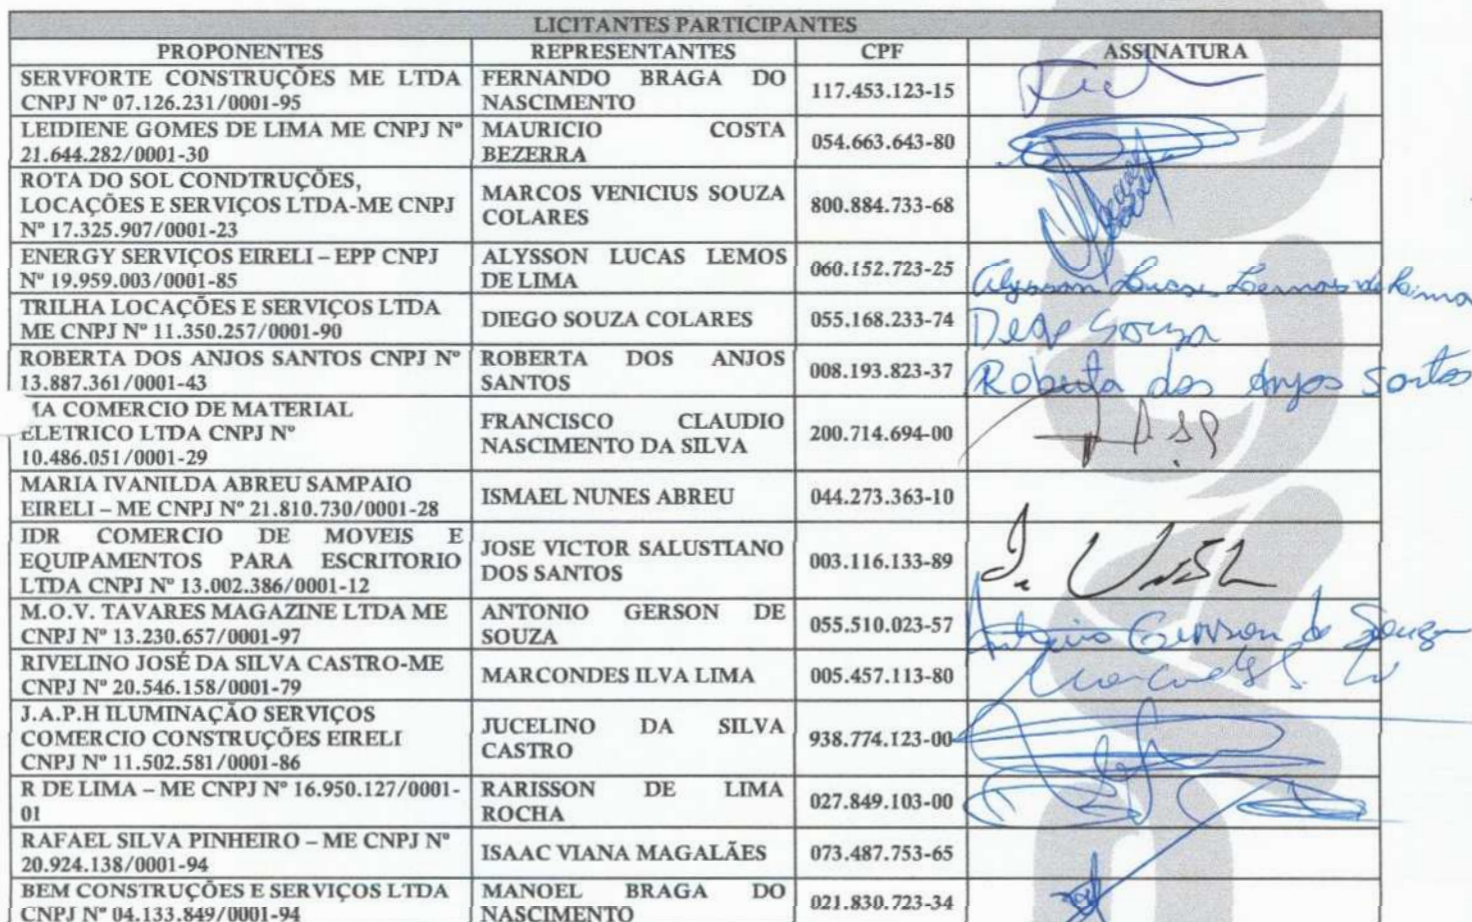 LICITANTES PARTICIPANTES
PROPONENTES REPRESENTANTES CPF ASSINATURA
SERVFORTE CONSTRUÇÕES ME LTDA
CNPJ Nº 07.126.231/0001-95
FERNANDO BRAGA DO
NASCIMENTO
117.453.123-15
LEIDIENE GOMES DE LIMA ME CNPJ Nº
21.644.282/0001-30
MAURICIO COSTA
BEZERRA
054.663.643-80
ROTA DO SOL CONDTRUÇÕES,
LOCAÇÕES E SERVIÇOS LTDA-ME CNPJ
Nº 17.325.907/0001-23
MARCOS VENICIUS SOUZA
COLARES
800.884.733-68
ENERGY SERVIÇOS EIRELI – EPP CNPJ
Nº 19.959.003/0001-85
ALYSSON LUCAS LEMOS
DE LIMA
060.152.723-25
Alysson Lucas Lemos de Lima
TRILHA LOCAÇÕES E SERVIÇOS LTDA
ME CNPJ Nº 11.350.257/0001-90
DIEGO SOUZA COLARES
055.168.233-74
Souza
ROBERTA DOS ANJOS SANTOS CNPJ Nº
13.887.361/0001-43
ROBERTA DOS ANJOS
SANTOS
008.193.823-37
Roberta dos Anjos Santos
COMERCIO DE MATERIAL
ELETRICO LTDA CNPJ Nº
10.486.051/0001-29
FRANCISCO CLAUDIO
NASCIMENTO DA SILVA
200.714.694-00
MARIA IVANILDA ABREU SAMPAIO
EIRELI – ME CNPJ Nº 21.810.730/0001-28
ISMAEL NUNES ABREU
044.273.363-10
IDR COMERCIO DE MOVEIS E
EQUIPAMENTOS PARA ESCRITORIO
LTDA CNPJ Nº 13.002.386/0001-12
JOSE VICTOR SALUSTIANO
DOS SANTOS
003.116.133-89
M.O.V. TAVARES MAGAZINE LTDA ME
CNPJ Nº 13.230.657/0001-97
ANTONIO GERSON DE
SOUZA
055.510.023-57
Antonio Gerson de Souza
RIVELINO JOSÉ DA SILVA CASTRO-ME
CNPJ Nº 20.546.158/0001-79
MARCONDES ILVA LIMA
005.457.113-80
J.A.P.H ILUMINAÇÃO SERVIÇOS
COMERCIO CONSTRUÇÕES EIRELI
CNPJ Nº 11.502.581/0001-86
JUCELINO DA SILVA
CASTRO
938.774.123-00
R DE LIMA – ME CNPJ Nº 16.950.127/0001-
01
RARISSON DE LIMA
ROCHA
027.849.103-00
RAFAEL SILVA PINHEIRO – ME CNPJ Nº
20.924.138/0001-94
ISAAC VIANA MAGALÃES
073.487.753-65
BEM CONSTRUÇÕES E SERVIÇOS LTDA
CNPJ Nº 04.133.849/0001-94
MANOEL BRAGA DO
NASCIMENTO
021.830.723-34